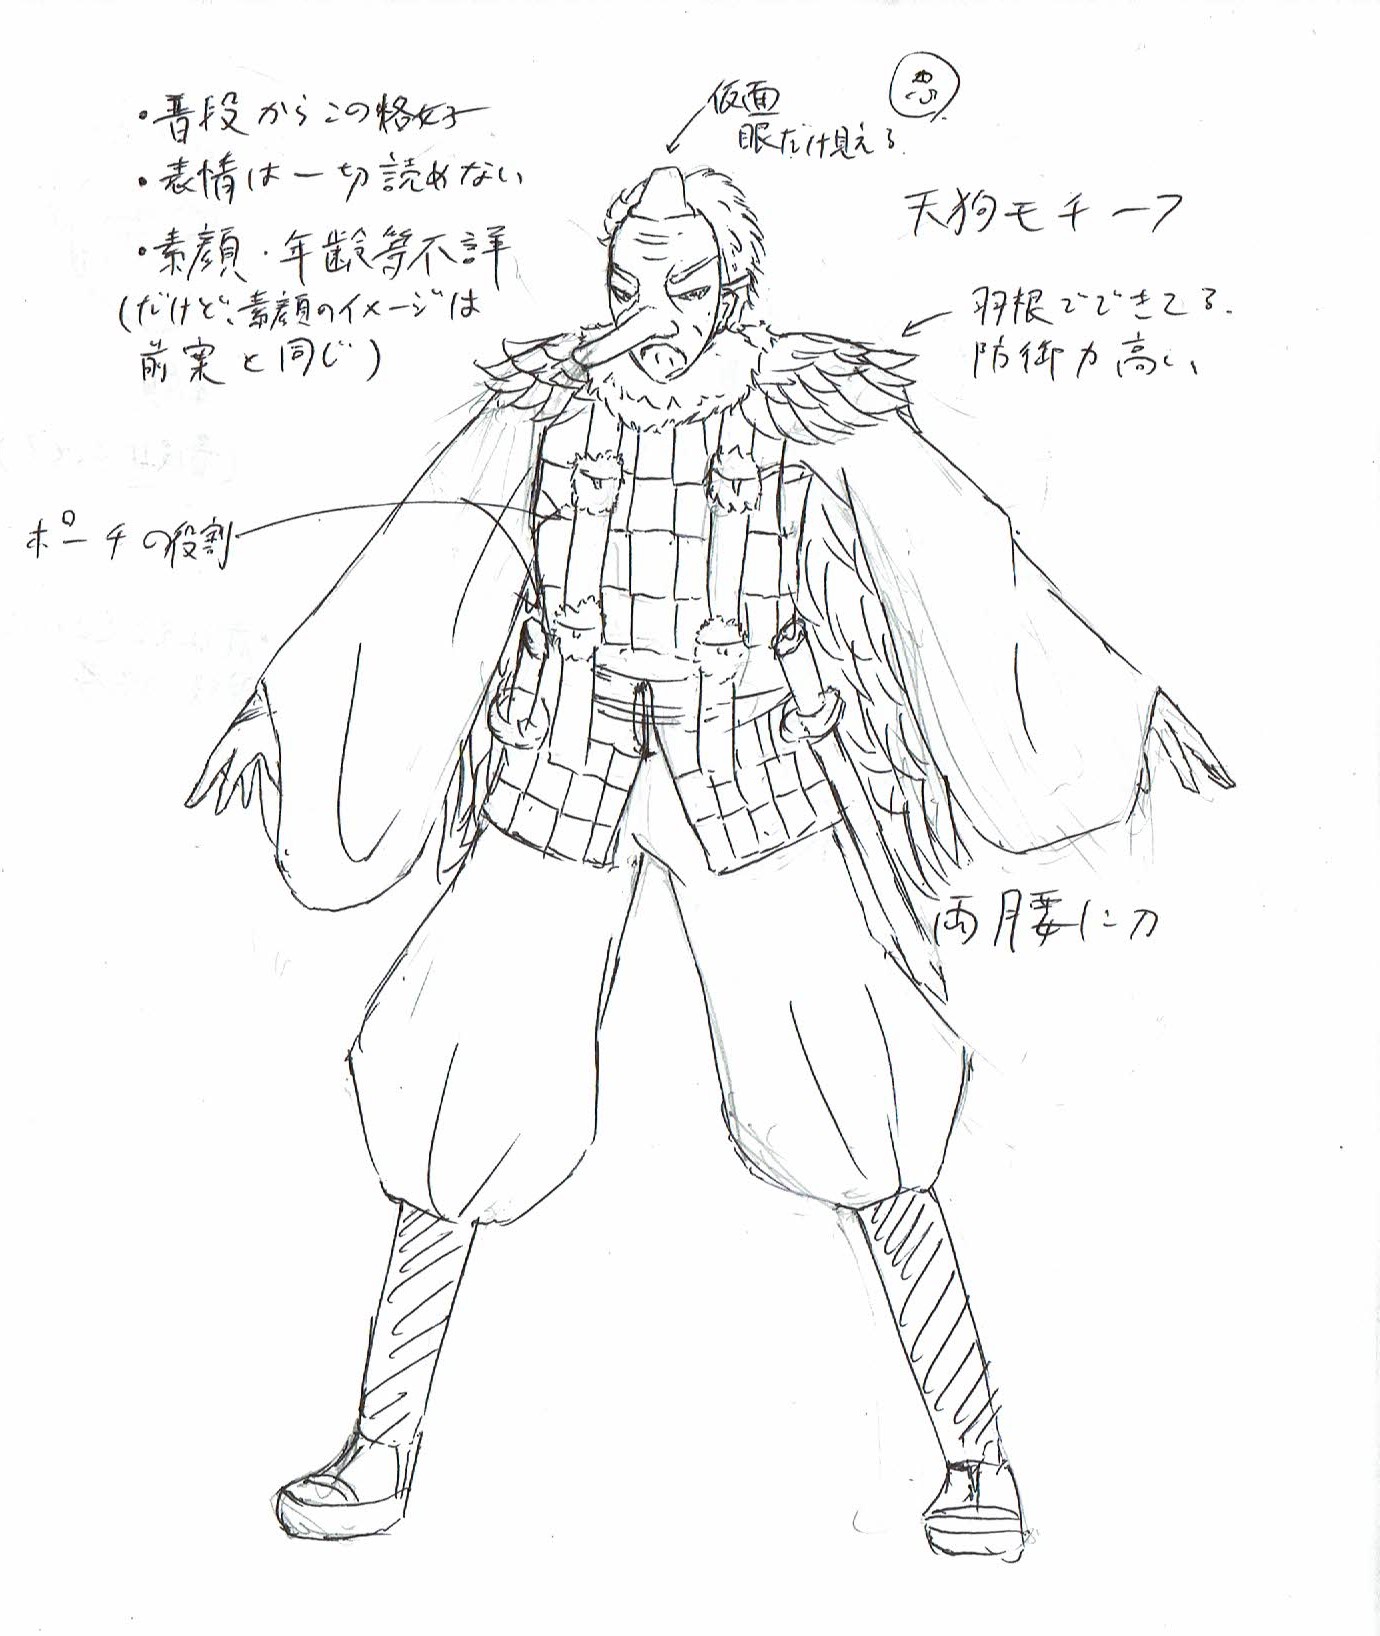 ・普段からこの格好
・表情は一切読めない
・素顔・年齢等不詳
(だけど、素顔のイメージは
前案と同じ)
仮面
眼だけ見える。
天狗モチーフ
羽根でできてる。
防御力高い
ポーチの役割
両腰に刀